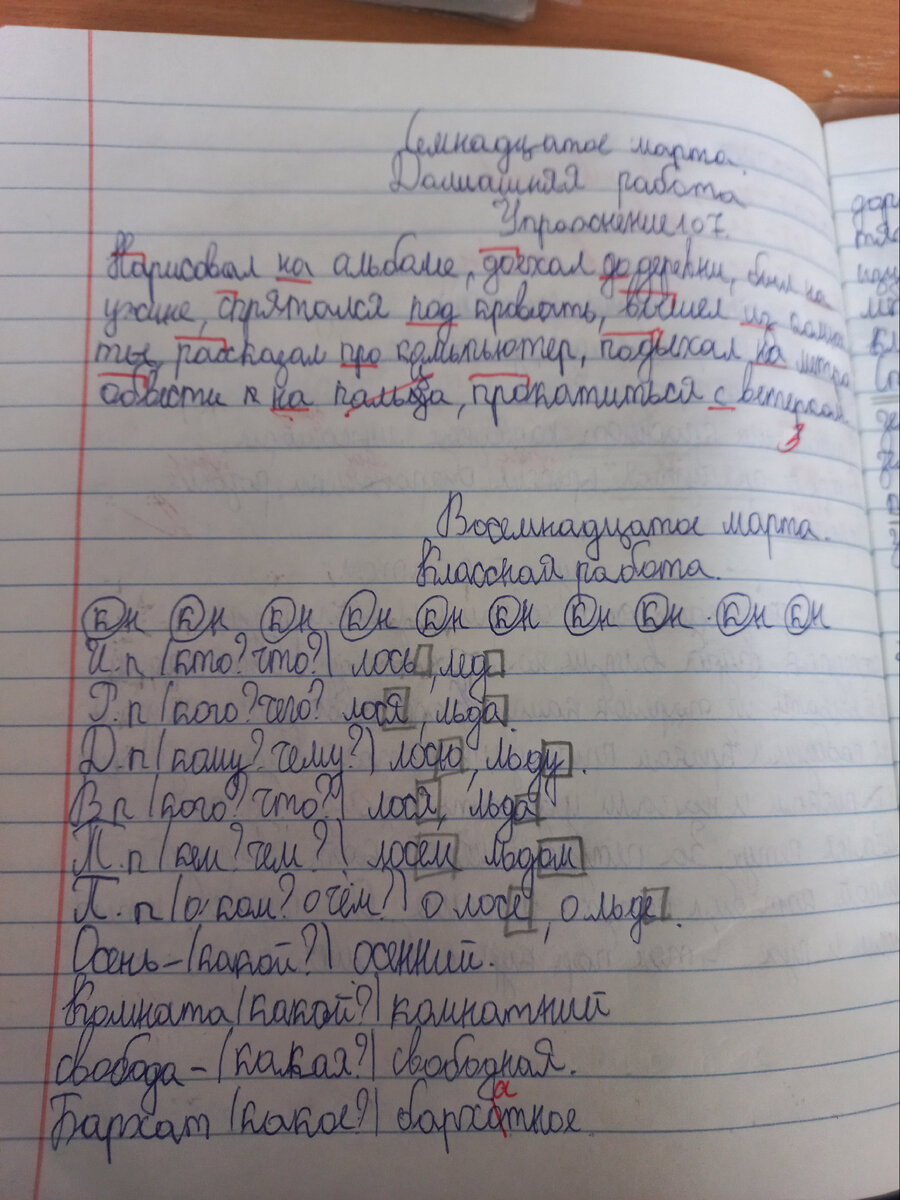 Семнадцатое марта.
Домашняя работа
Упражнение 107.
Нарисовал на альбоме, доехал до деревни, был на
ужине, спрятался под кровать, вышел из комна
ты, рассказал про компьютер, подъехал на метро
обвести на пальца, прокатиться с ветерком
3
Восемнадцатое марта.
Классная работа.
Юн Юн Юн Юн Юн Юн Юн Юн Юн Юн
И.п (кто? что?) лось, лед
Р.п (кого? чего? лося, льда
Д.п (кому? чему?) лосю, льду.
В п (кого? что?) лося, льда
Т.п (кем? чем?) лосем льдом
П.п (о ком? о чём?) о лосе, о льде.
Осень – (какой?) осенний.
Комната (какой?) комнатний
свобода – (какая?) свободная.
а
Бархат (какое?) бархотное